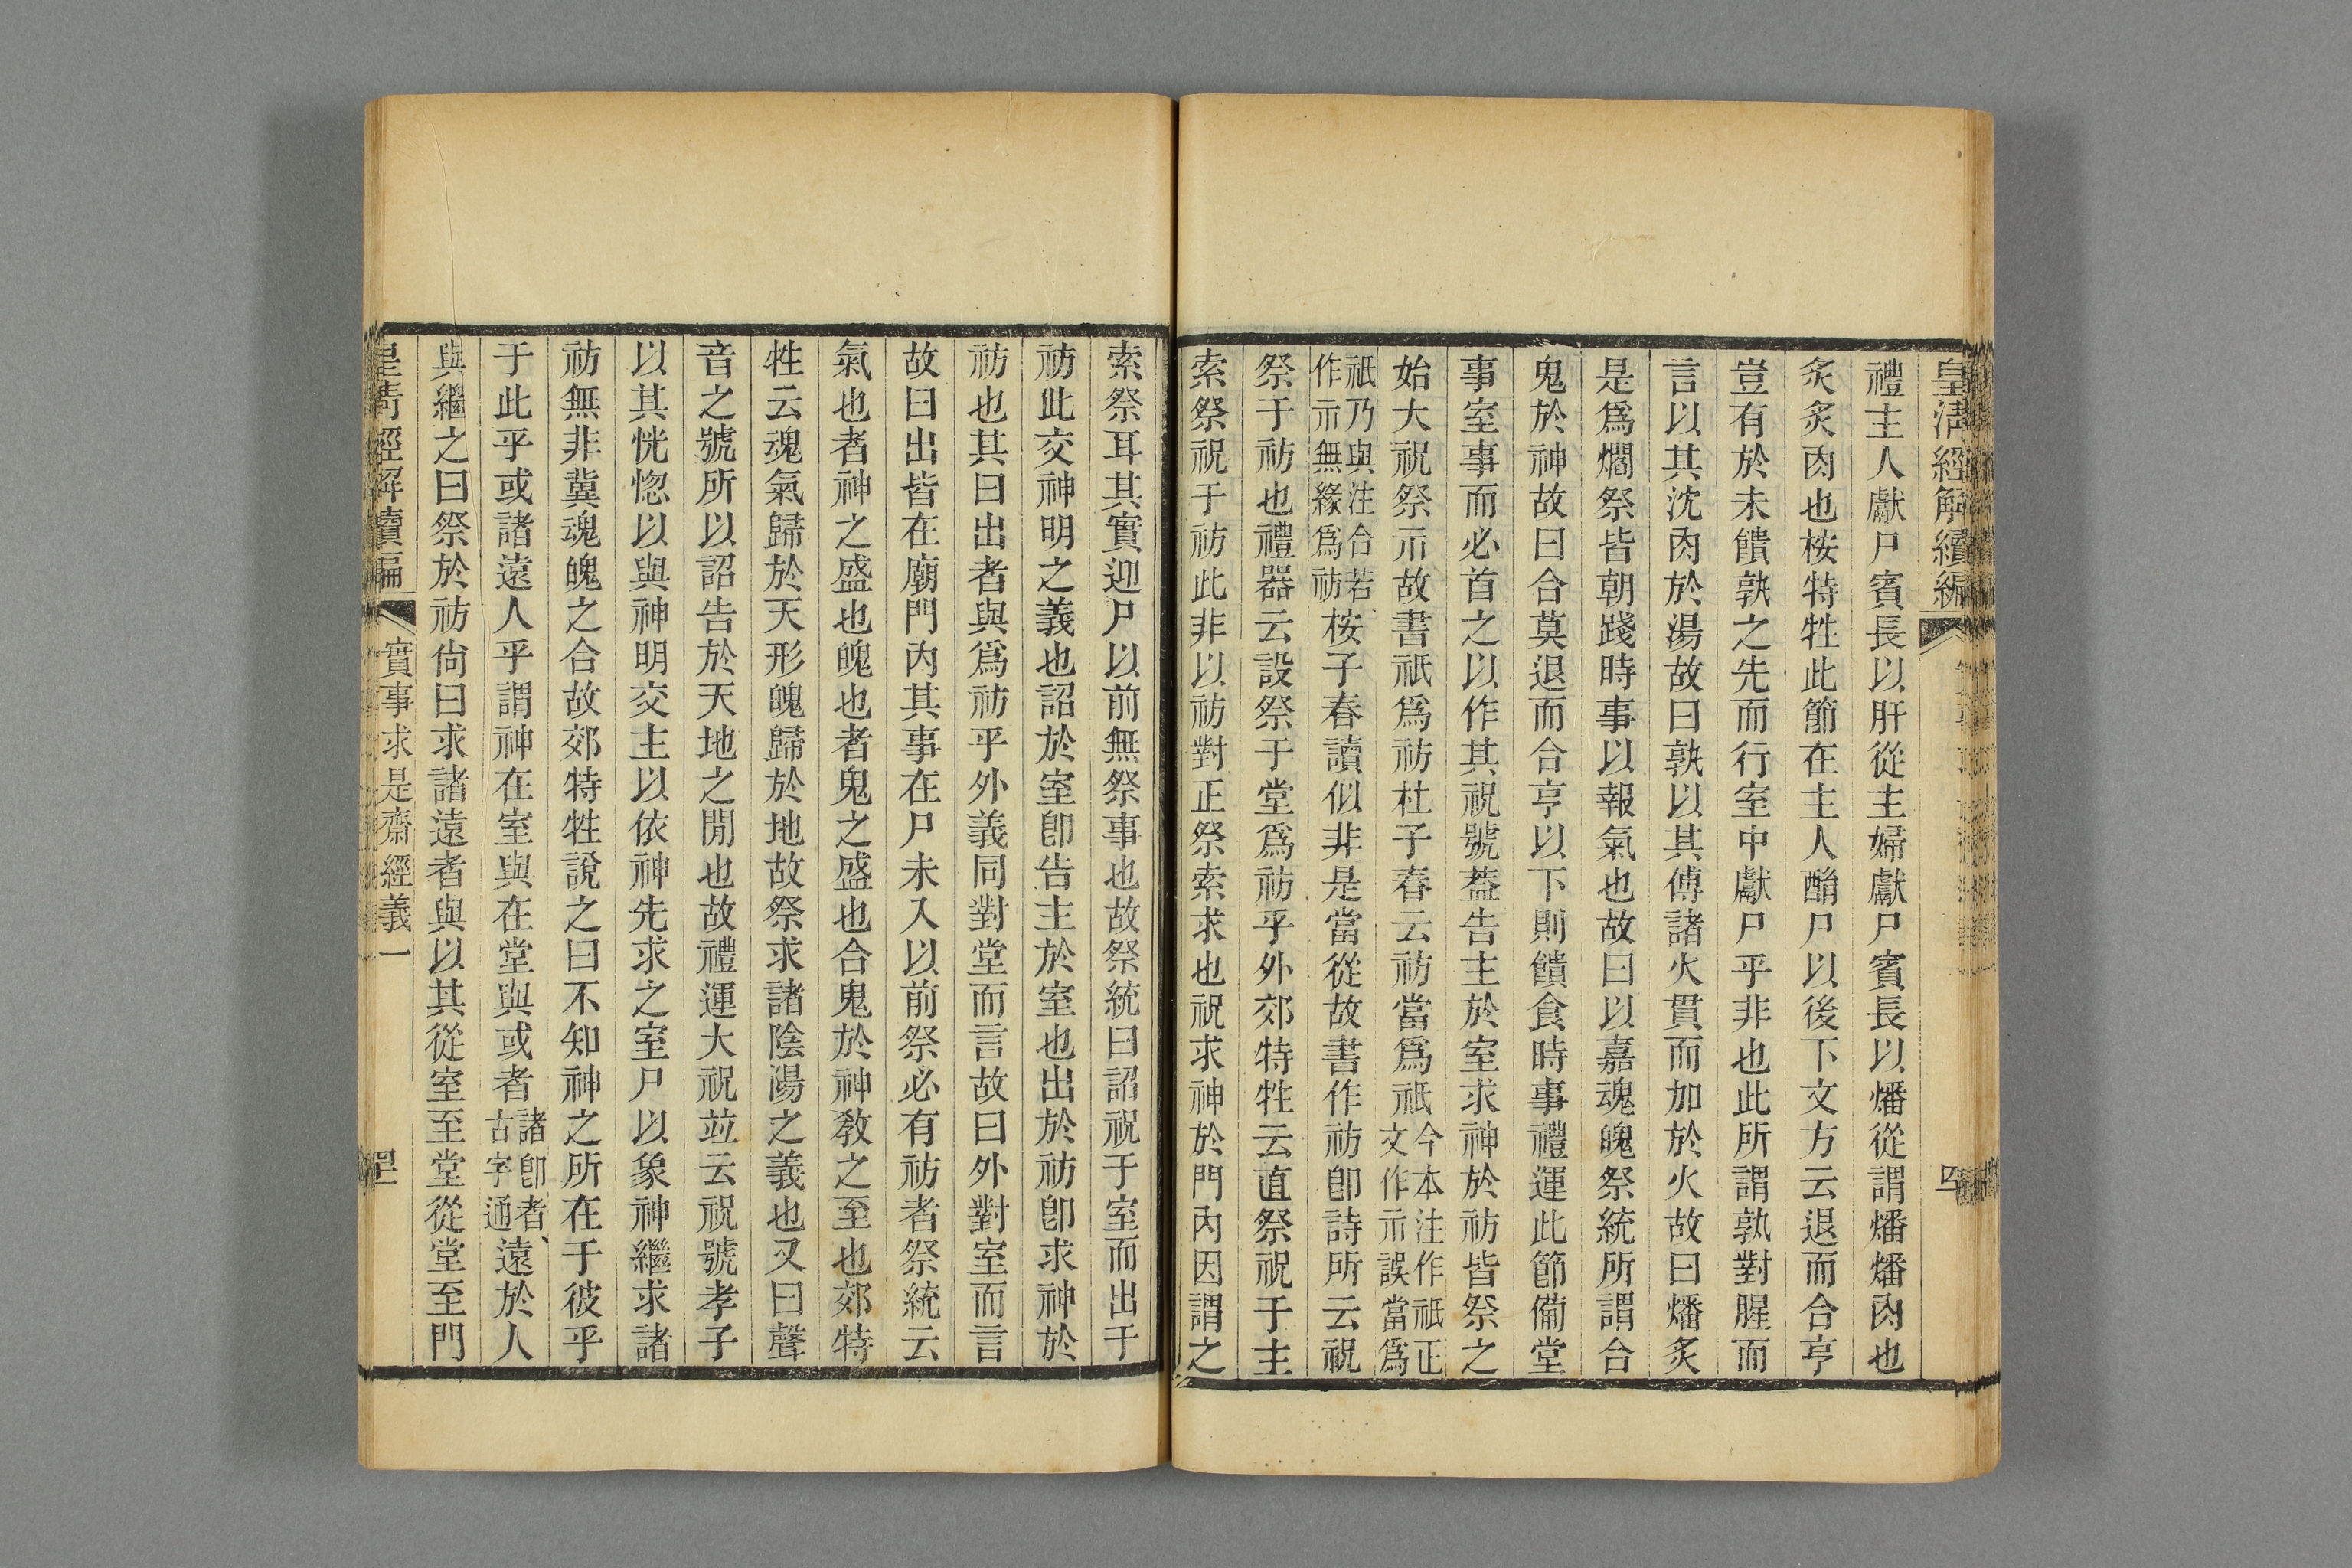 皇清經解續編
禮主人獻尸賓長以肝從主婦獻尸賓長以燔從謂燔燔肉也
炙炙肉也桉特牲此節在主人酳尸以後下文方云退而合亨
豈有於未饋孰之先而行室中獻尸乎非也此所謂孰對腥而
言以其沈肉於湯故曰孰以其傅諸火貫而加於火故曰燔炙
是爲爓祭皆朝踐時事以報氣也故曰以嘉魂魄祭統所謂合
鬼於神故曰合莫退而合亨以下則饋食時事禮運此節備堂
事室事而必首之以作其祝號葢告主於室求神於祊皆祭之
始大祝祭示故書祇爲祊杜子春云祊當爲祇今本注作祇正
文作示誤當爲
祇乃與注合若
作示無緣爲祊桉子春讀似非是當從故書作祊卽詩所云祝
祭于祊也禮器云設祭于堂爲祊乎外郊特牲云直祭祝于主
索祭祝于祊此非以祊對正祭索求也祝求神於門內因謂之
索祭耳其實迎尸以前無祭事也故祭統曰詔祝于室而出于
祊此交神明之義也詔於室卽告主於室也出於祊卽求神於
祊也其曰出者與爲祊乎外義同對堂而言故曰外對室而言
故曰出皆在廟門內其事在尸未入以前祭必有祊者祭統云
氣也者神之盛也魄也者鬼之盛也合鬼於神教之至也郊特
牲云魂氣歸於天形魄歸於地故祭求諸陰陽之義也又曰聲
音之號所以詔告於天地之閒也故禮運大祝竝云祝號孝子
以其恍惚以與神明交主以依神先求之室尸以象神繼求諸
祊無非冀魂魄之合故郊特牲說之曰不知神之所在于彼乎
于此乎或諸遠人乎謂神在室與在堂與或者諸卽者
古字通遠於人
與繼之曰祭於祊尙曰求諸遠者與以其從室至堂從堂至門
皇清經解續編 實事求是齋經義一